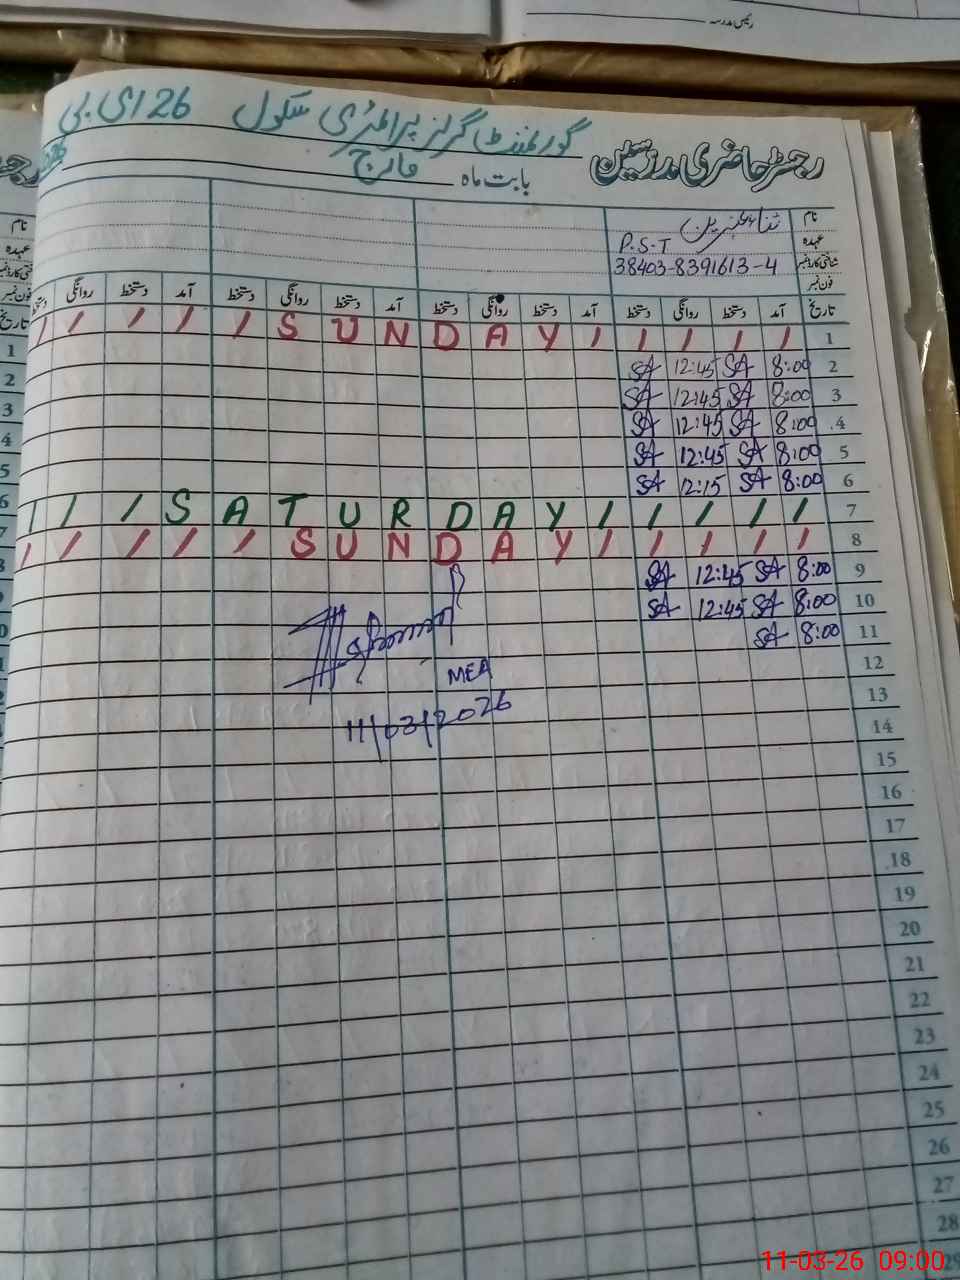 رئیس مدرسہ
گورنمنٹ گرلز پرائمری سکول 26 ای بی
رجسٹر حاضری مدرسین
بابت ماہ مارچ
نام
عہدہ P.S.T
شناختی کارڈ نمبر 38403-8391613-4
فون نمبر
تاریخ آمد دستخط روانگی دستخط آمد دستخط روانگی دستخط آمد دستخط روانگی دستخط آمد دستخط روانگی دستخط
/ / / / / S U N D A Y / / / / / 1
SA 12:45 SA 8:00 2
SA 12:45 SA 8:00 3
SA 12:45 SA 8:00 4
SA 12:45 SA 8:00 5
SA 12:15 SA 8:00 6
/ / / S A T U R D A Y / / / / / 7
/ / / / / S U N D A Y / / / / / 8
SA 12:45 SA 8:00 9
SA 12:45 SA 8:00 10
SA 8:00 11
12
MEA
13
11/03/2026
14
15
16
17
18
19
20
21
22
23
24
25
26
27
28
29
نام
عہدہ
فون نمبر
تاریخ
1
2
3
4
5
6
7
11-03-26 09:00